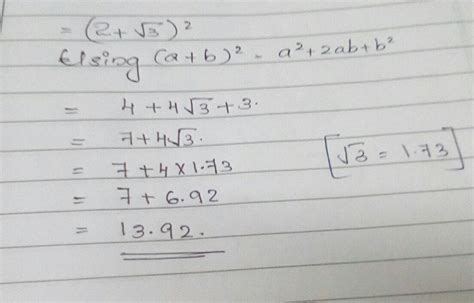 = (2 + √3)²
Using (a+b)² - a²+2ab+b²
= 4 + 4√3 + 3.
= 7 + 4√3.
= 7 + 4 × 1.73 [√3 = 1.73]
= 7 + 6.92
= 13.92.